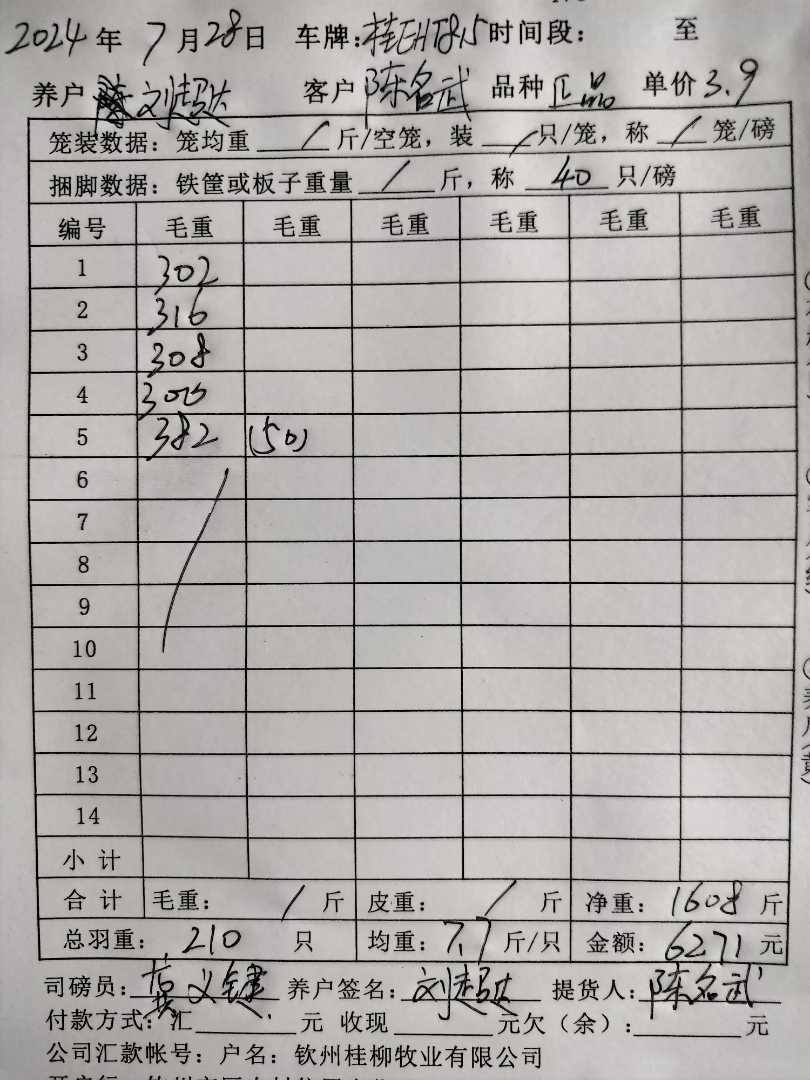 2024年 7月28日 车牌:桂EHT815时间段: 至
养户 刘超达 客户 陈名武 品种 正品 单价 3.9
笼装数据: 笼均重 / 斤/空笼, 装 / 只/笼, 称 / 笼/磅
捆脚数据: 铁筐或板子重量 / 斤, 称 40 只/磅
编号 毛重 毛重 毛重 毛重 毛重 毛重
1 302
2 316
3 308
4 300
5 382 (50)
6
7
8
9
10
11
12
13
14
小计
合计 毛重: / 斤 皮重: / 斤 净重: 1608 斤
总羽重: 210 只 均重: 7.7 斤/只 金额: 6271 元
司磅员: 义键 养户签名: 刘超达 提货人: 陈名武
付款方式: 汇 元 收现 元欠(余): 元
公司汇款帐号: 户名: 钦州桂柳牧业有限公司